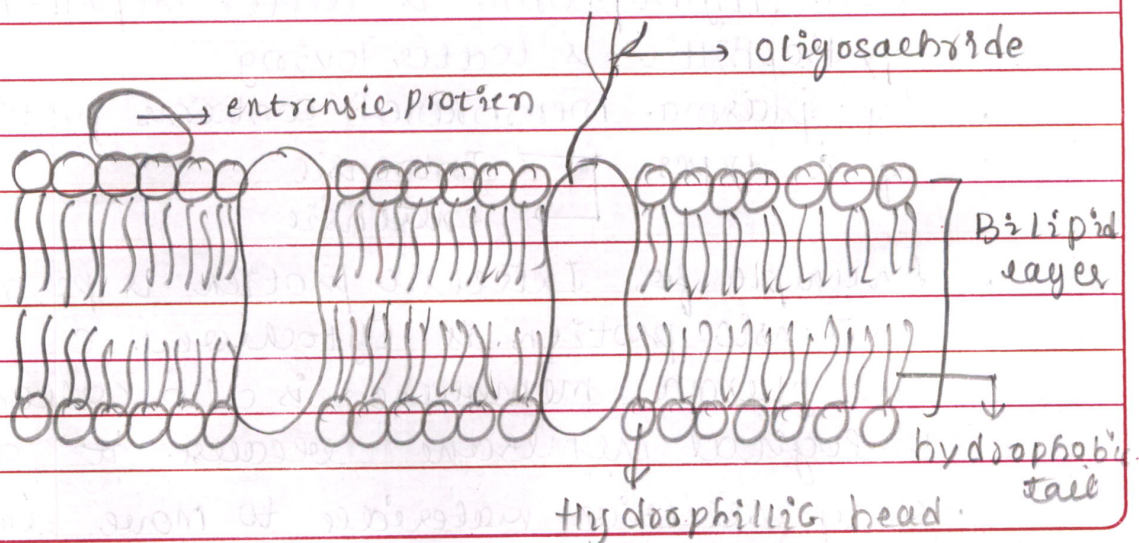 oligosachride
entrensic protien
Bilipid
layer
hydrophobic
tail
Hydrophillic head.